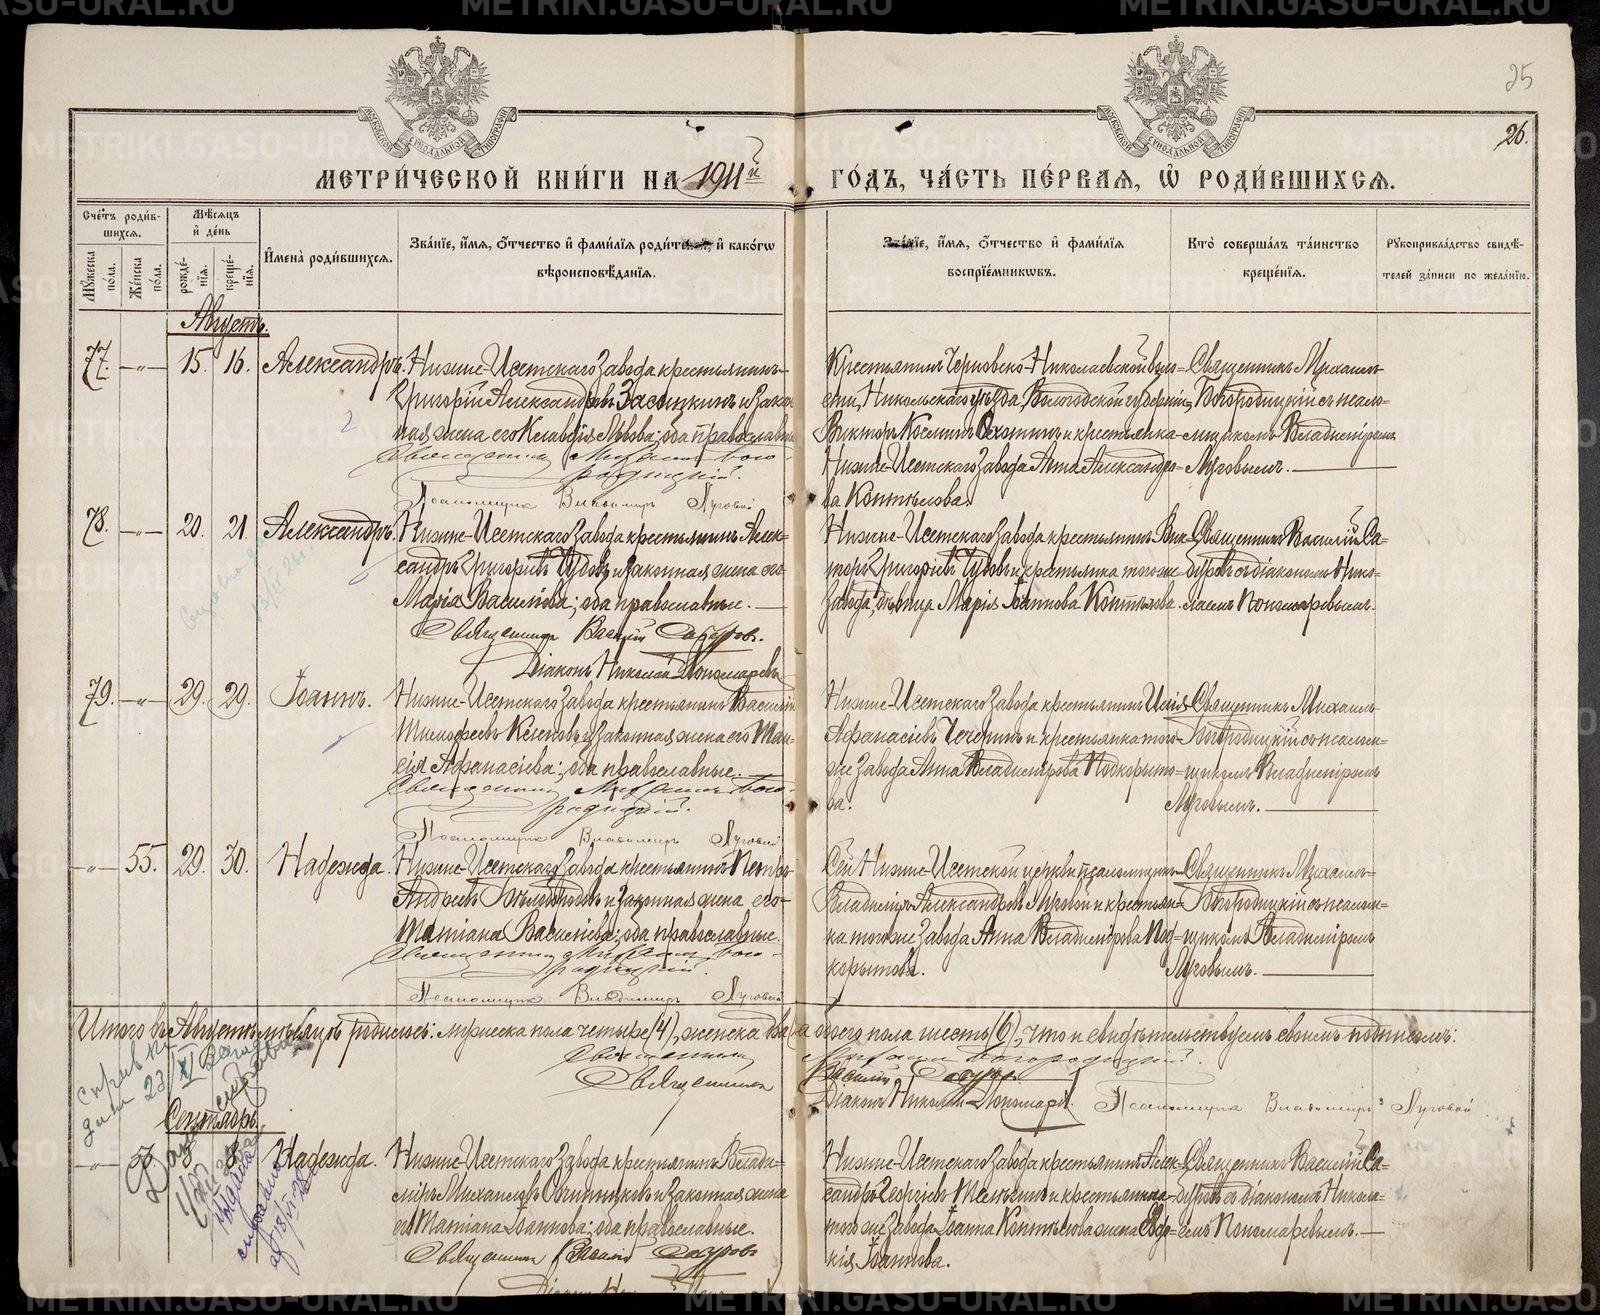 25
26.
МЕТРИ́ЧЕСКОЙ КНИ́ГИ НА 1911й ГО́ДЪ, ЧА́СТЬ ПЕ́РВАЯ, Ѽ РОДИ́ВШИХСЯ.
Сче́тъ роди́вшихся.
Мꙋ́жеска по́ла.
Же́нска по́ла.
Мѣ́сяцъ и҆ де́нь
рожде́нїя.
креще́нїя.
И҆мена̀ роди́вшихся.
Зва́нїе, и҆́мя, ѻ҆́тчество и҆ фами́лїя роди́телей, и҆ како́гѡ
вѣроисповѣ́данїя.
Зва́нїе, и҆́мя, ѻ҆́тчество и҆ фами́лїя
воспрїе́мникѡвъ.
Кто̀ соверша́лъ та́инство
креще́нїя.
Рꙋкоприкла́дство свидѣ́телей за́писи по жела́нїю.
Августъ.
77. —„— 15. 16. Александръ.
Нижне-Исетскаго завода крестьянинъ
Григорій Александровъ Засыпкинъ и закон-
ная жена его Клавдія Львова; оба православные
Священникъ Михаилъ Бого-
родицкій.
Псаломщикъ Владимиръ Луговой
Крестьянинъ Черновско-Николаевской воло-
сти, Никольскаго уѣзда, Вологодской губерніи,
Викторъ Косминъ Охотинъ и крестьянка
Нижне-Исетскаго завода Анна Александро-
ва Коптѣлова.
Священникъ Михаилъ
Богородицкій съ псало-
мщикомъ Владиміромъ
Луговымъ.
78. —„— 20. 21. Александръ.
Нижне-Исетскаго завода крестьянинъ Алек-
сандръ Григорьевъ Чудовъ и законная жена его
Марія Васильева; оба православные.
Священникъ Василій Сабуровъ.
Діаконъ Николай Пономаревъ
Нижне-Исетскаго завода крестьянинъ Вик-
торъ Григорьевъ Чудовъ и крестьянка того же
завода, дѣвица Марія Іоаннова Коптѣлова.
Священникъ Василій Са-
буровъ съ діакономъ Нико-
лаемъ Пономаревымъ.
79. —„— 29. 29. Іоаннъ.
Нижне-Исетскаго завода крестьянинъ Василій
Тимофеевъ и законная жена его Таи-
сія Афанасіева; оба православные.
Священникъ Михаилъ Бого-
родицкій.
Псаломщикъ Владимиръ Луговой
Нижне-Исетскаго завода крестьянинъ Илія
Афанасіевъ и крестьянка того
же завода Анна Владимірова Подкорыто-
ва.
Священникъ Михаилъ
Богородицкій съ псалом-
щикомъ Владиміромъ
Луговымъ.
—„— 55. 29. 30. Надежда.
Нижне-Исетскаго завода крестьянинъ Петръ
Андреевъ Бѣлобородовъ и законная жена его
Татіана Васильева; оба православные.
Священникъ Михаилъ Бого-
родицкій.
Псаломщикъ Владимиръ Луговой
Сей Нижне-Исетской церкви псаломщикъ
Владиміръ Александровъ Луговой и крестьян-
ка того же завода Анна Владимірова Под-
корытова.
Священникъ Михаилъ
Богородицкій съ псалом-
щикомъ Владиміромъ
Луговымъ.
Итого въ Августѣ мѣсяцѣ родилось: мужеска пола четыре (4), женска два а обоего пола шесть (6), что и свидѣтельствуемъ своимъ подписомъ:
Священникъ Михаилъ Богородицкій.
Священникъ Василій Сабуровъ
Діаконъ Николай Пономаревъ Псаломщикъ Владимиръ Луговой
Сентябрь.
Надежда.
Нижне-Исетскаго завода крестьянинъ Влади-
міръ Михаиловъ и законная жена
его Татіана Іоаннова; оба православные.
Священникъ Василій Сабуровъ
Нижне-Исетскаго завода крестьянинъ Алек-
сандръ Георгіевъ и крестьянина
того же завода Іоанна Коптѣлова жена Евдо-
кія Іоаннова.
Священникъ Василій Са-
буровъ съ діакономъ Никола-
емъ Пономаревымъ.
METRIKI.GASO-URAL.RU